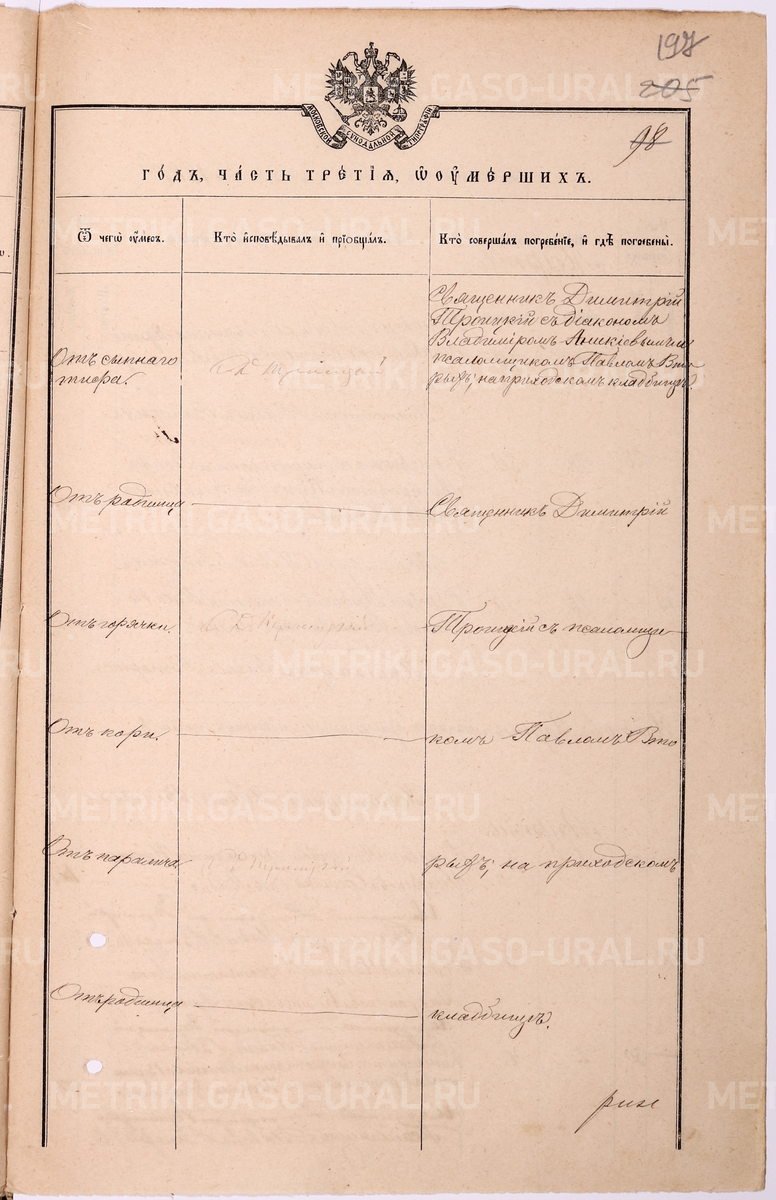 197
205
98
МОСКОВСКОЙ СѴНОДАЛЬНОЙ ТИПОГРАФІИ
ГО́ДЪ, ЧА́СТЬ ТРЕ́ТІЯ, Ѽ ОУ҆МЕ́РШИХЪ.
Ѿ чегѡ̀ оу҆́меръ.
Кто̀ и҆сповѣ́дывалъ и҆ прїѡбща́лъ.
Кто̀ соверша́лъ погребе́нїе, и҆ гдѣ̀ погребены̀.
Отъ сыпнаго
тифа.
Д. Троицкій
Священникъ Димитрій
Троицкій съ діакономъ
Владиміромъ Аникіевымъ и
псаломщикомъ Павломъ Вто
рыхъ, на приходскомъ кладбищѣ.
Отъ родимца
Священникъ Димитрій
Отъ горячки.
Д. Троицкій
Троицкій съ псаломщи
Отъ кори.
комъ Павломъ Вто
Отъ паралича.
Д. Троицкій
рыхъ, на приходскомъ
Отъ родимца
кладбищѣ.
METRIKI.GASO-URAL.RU